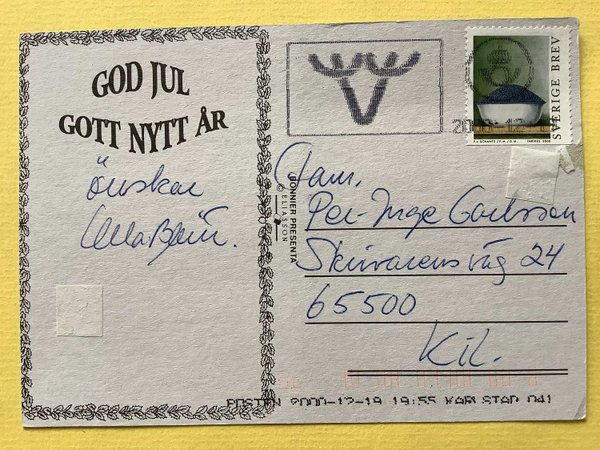 GOD JUL
GOTT NYTT ÅR
önskar
Ulla Britt.
BONNIER PRESENTA
ELIASSON
Fam.
Per-Inge Carlsson
Skivarensväg 24
65500
Kil.
SVERIGE BREV
POSTEN 2000-12-19 19:55 KARLSTAD 041